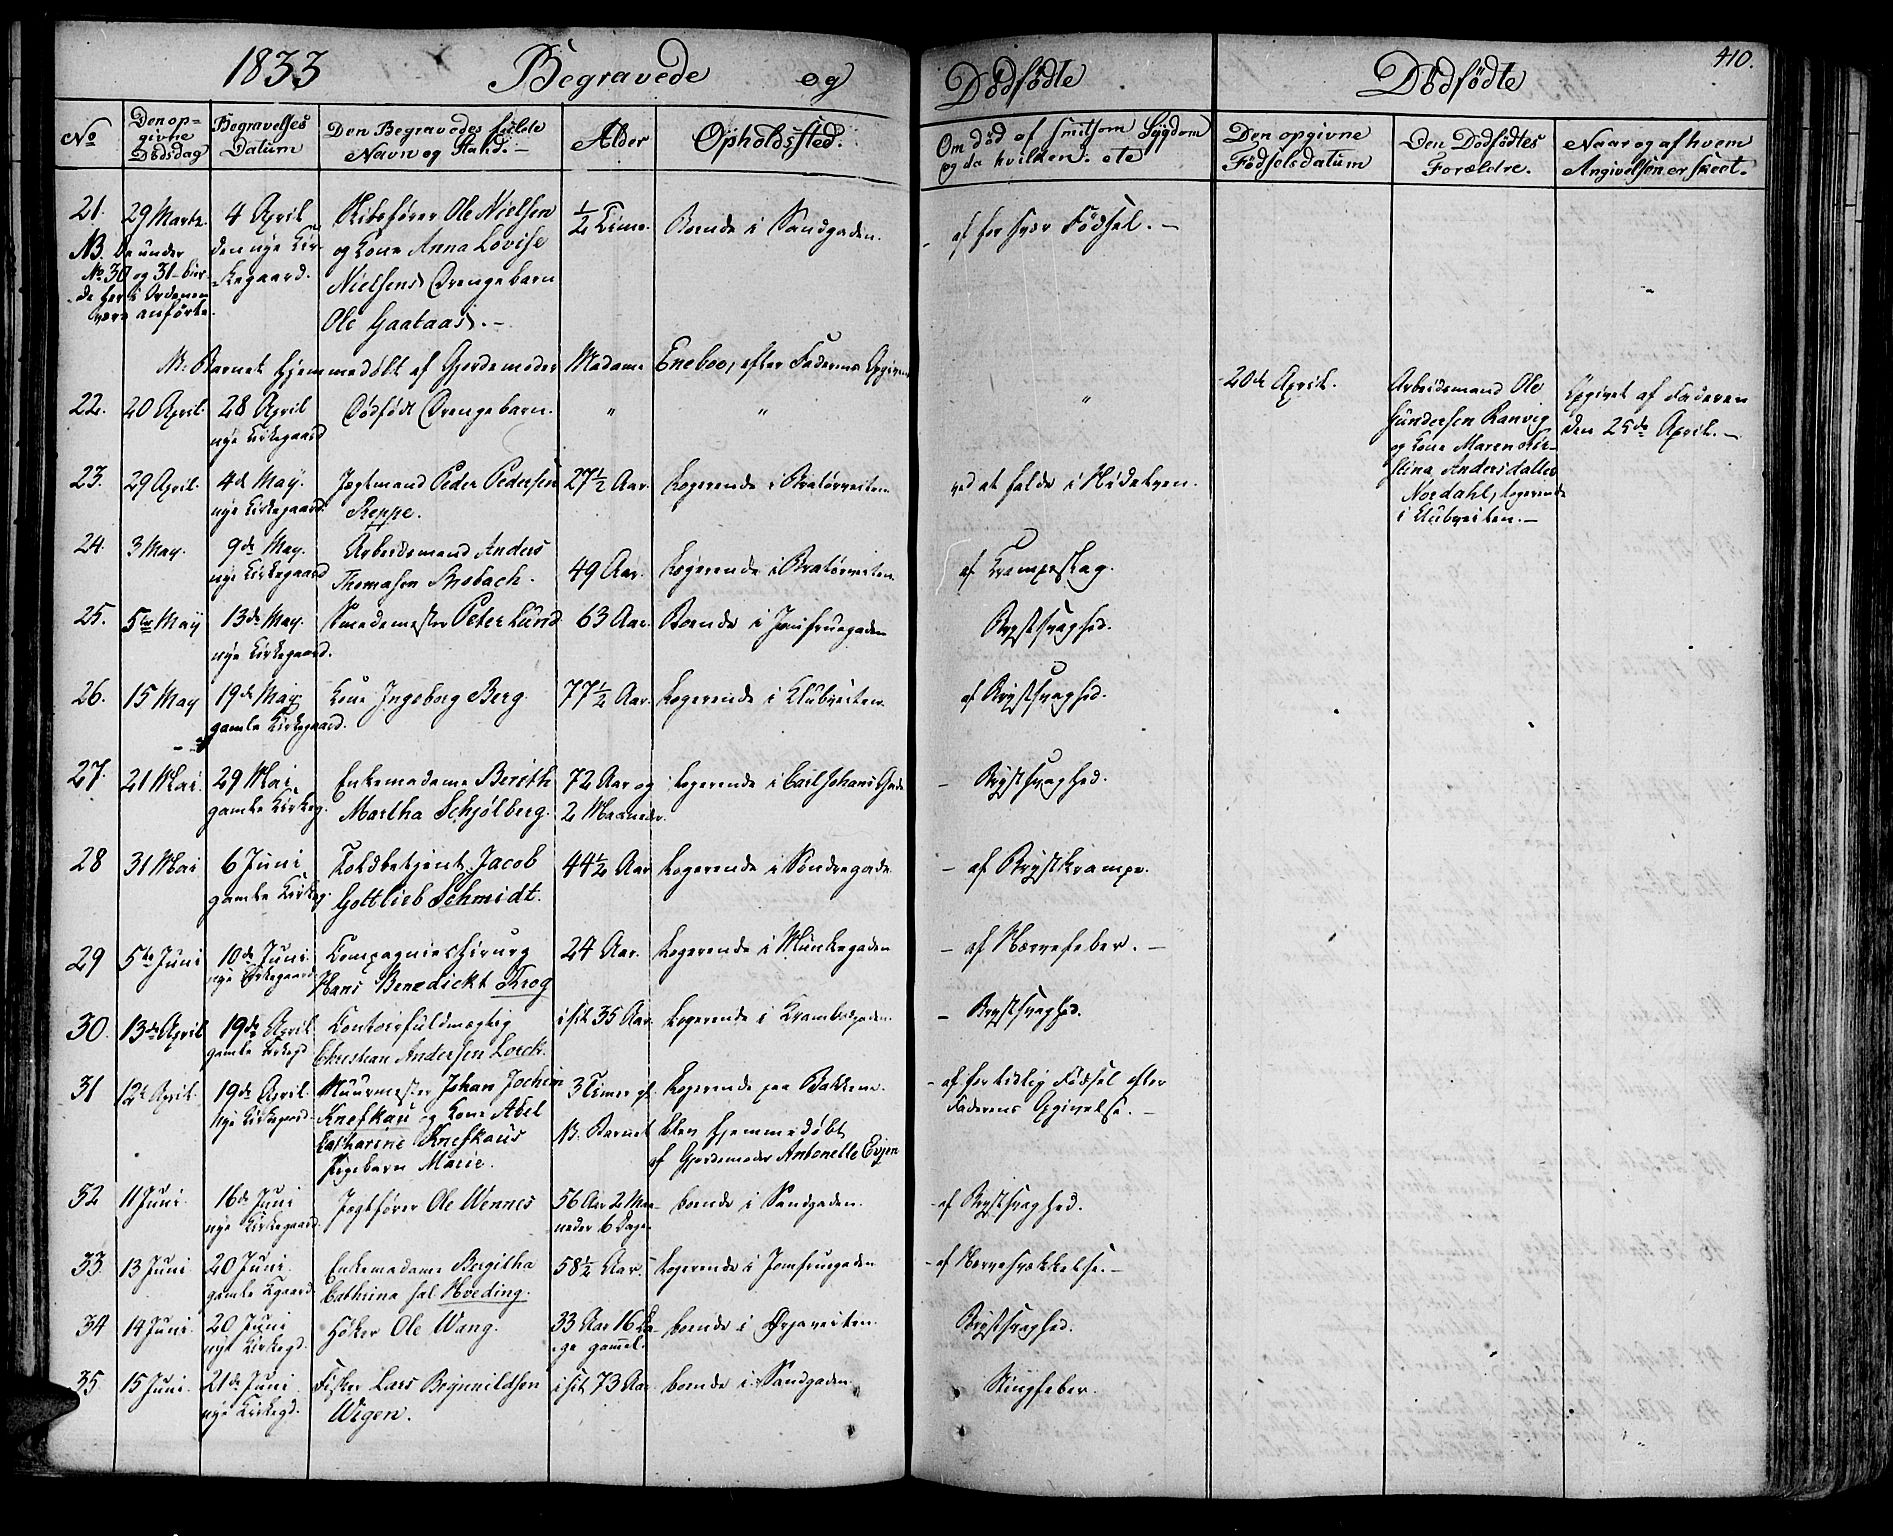 1833 Begravede og Dødfødte Dødfødte 410.
No
Den opgivne Dødsdag
Begravelses Datum
Den Begravedes fulde Navn og Stand. —
Alder
Opholdssted.
Om død af smitsom Sygdom og da hvilken. etc
Den opgivne Fødselsdatum
Den Dødfødtes Forældre.
Naar og af hvem Angivelsen er skeet.
21. 29 Marts 4 April Ole Nielsen ½ Time. Boende i Sandgaden. af for svær Fødsel. —
NB. De under den nye Kir- og Kone Anna Lovise
No 30 og 31 bur- kegaard. Nielsens Drengebarn
de her i Ordenen Ole Gaataas. —
være anførte.
NB. Barnet hjemmedøbt af Gjordemoder Madame Eneboe, efter Faderens Opgivende
22. 20 April. 28 April Dødfødt Drengebarn. " " " 20de April. Arbeidsmand Ole Opgivet af Faderen
nye Kirkegaard Gundersen Ranvig den 25de April. —
og Kone Maren Kir-
stina Andersdatter
Nordahl, logerende
i Klubveiten. —
23. 29 April. 4de May. Jegtmand Peder Pedersen 27½ Aar. Logerende i Bratørveiten ved at falde i Nidelven.
nye Kirkegaard Reppe.
24. 3 May. 9de May. Arbeidsmand Anders 49 Aar. Logerende i Bratørveiten. af Krampeslag.
nye Kirkegaard Thomasen
25. 5te May 13de May. Smedemester Peter Lund 63 Aar. Boende i Jomfruegaden Brystsvaghed.
nye Kirkegaard.
26. 15 May 19de May. Kone Ingeborg Berg. 77½ Aar. Logerende i Klubveiten. af Brystsvaghed.
gamle Kirkegaard.
27. 21 Mai. 29 Mai Enkemadame Berith 72 Aar og Logerende i Carl Johans Gade – Brystsvaghed.
gamle Kirkeg. Martha Schjølberg. 2 Maaneder.
28 31 Mai 6 Juni Toldbetjent Jacob 44½ Aar Logerende i Søndregade – af Brystkrampe.
gamle Kirkeg. Gottlieb Schmidt.
29 5te Juni 10de Juni. Compagniechirurg 24 Aar. Logerende i Munkegaden – af Nervefeber. —
nye Kirkegaard Hans Benedickt Krog
30. 13de April 19de April Contoirfuldmægtig i sit 35 Aar. Logerende i Krambodgaden. – Brystsvaghed.
gamle Kirkegd. Christian Andersen Lorck.
31 12te April. 19de April. Muurmester Johan Jochim 3 Timer gl. Logerende paa Bakkene. – af for tidlig Fødsel efter
nye Kirkegaard. Knefkau og Kone Abel NB. Barnet blev hjemmedøbt Faderens Opgivelse. —
Catharine Knefkaus af Gjordemoder Antonette Evjen
Pigebarn Marie.
32 11 Juni. 16de Juni Jegtfører Ole Wennes 56 Aar 2 Maa- boende i Sandgaden. – af Brystsvaghed.
nye Kirkegaard. neder 6 Dage
33. 13 Juni 20 Juni. Enkemadame Bergitha 58½ Aar. Logerende i Jomfruegaden – af Nervesvækkelse. —
gamle Kgaard Cathrina sal. Hveding.
34 14 Juni. 20 Juni Høker Ole Wang. 33 Aar 16 Da- boende i Ørjaveiten. Brystsvaghed.
nye Kirkegd. ge gamel.
35 15 Juni. 21de Juni Fisker Lars Brynnildsen i sit 73 Aar boende i Sandgaden.
nye Kirkegd. Wigen.